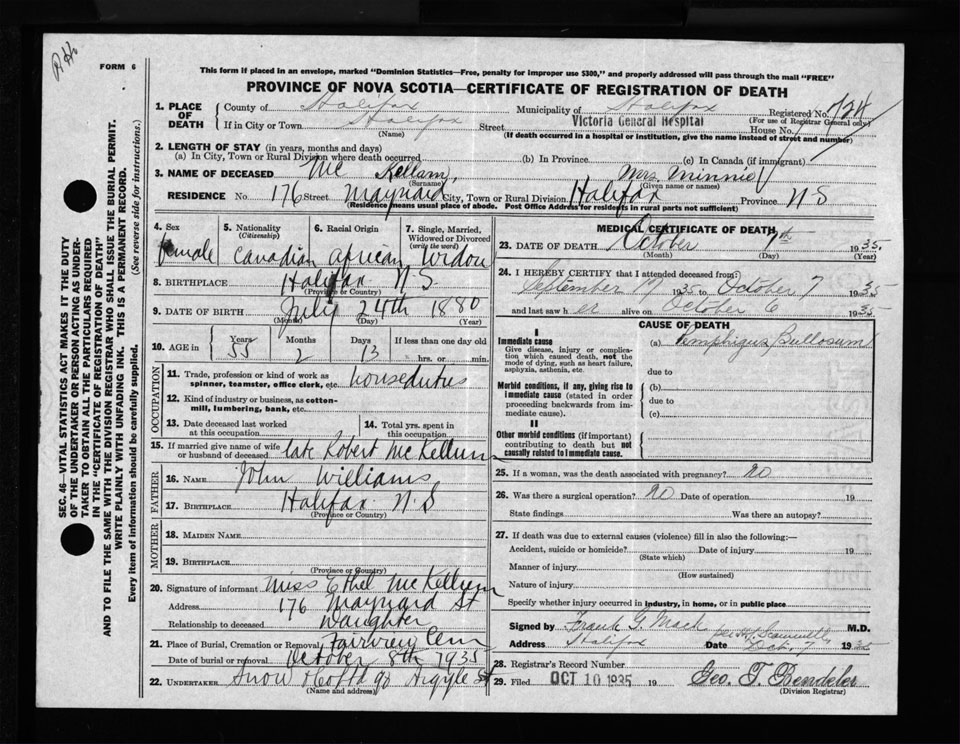 FORM 6
This form if placed in an envelope, marked "Dominion Statistics—Free, penalty for improper use $300," and properly addressed will pass through the mail "FREE"
PROVINCE OF NOVA SCOTIA—CERTIFICATE OF REGISTRATION OF DEATH
1. PLACE OF DEATH County of Halifax Municipality of Halifax Registered No. 724
(For use of Registrar General only)
If in City or Town Halifax Street Victoria General Hospital House No.
(Name) (If death occurred in a hospital or institution, give the name instead of street and number)
2. LENGTH OF STAY (in years, months and days)
(a) In City, Town or Rural Division where death occurred (b) In Province (c) In Canada (if immigrant)
3. NAME OF DECEASED Mc Kellam, Mrs. Minnie
(Surname) (Given name or names)
RESIDENCE No 176 Street Maynard City, Town or Rural Division Halifax Province N S
(Residence means usual place of abode. Post Office Address for residents in rural parts not sufficient)
4. Sex 5. Nationality (Citizenship) 6. Racial Origin 7. Single, Married, Widowed or Divorced (write the word)
female Canadian african Widow
8. BIRTHPLACE Halifax N S
(Province or Country)
9. DATE OF BIRTH July 24th 1880
(Month) (Day) (Year)
10. AGE in Years Months Days If less than one day old
55 2 13 hrs. or min.
OCCUPATION
11. Trade, profession or kind of work as spinner, teamster, office clerk, etc. houseduties
12. Kind of industry or business, as cotton-mill, lumbering, bank, etc.
13. Date deceased last worked at this occupation 14. Total yrs. spent in this occupation
15. If married give name of wife or husband of deceased late Robert Mc Kellum
FATHER
16. NAME John Williams
17. BIRTHPLACE Halifax N S
(Province or Country)
MOTHER
18. MAIDEN NAME
19. BIRTHPLACE
(Province or Country)
20. Signature of informant Miss Ethel Mc Kellum
Address 176 Maynard St
Relationship to deceased Daughter
21. Place of Burial, Cremation or Removal Fairview Cem
Date of burial or removal October 8th 1935
22. UNDERTAKER Snow & Co Argyle St
(Name and address)
MEDICAL CERTIFICATE OF DEATH
23. DATE OF DEATH October 7th 1935
(Month) (Day) (Year)
24. I HEREBY CERTIFY that I attended deceased from:
September 17 1935 to October 7 1935
and last saw h er alive on October 6 1935
CAUSE OF DEATH
I
Immediate cause
Give disease, injury or complication which caused death, not the mode of dying, such as heart failure, asphyxia, asthenia, etc.
(a) Pemphigus Bullosum
due to
Morbid conditions, if any, giving rise to immediate cause (stated in order proceeding backwards from immediate cause).
(b)
due to
(c)
II
Other morbid conditions (if important) contributing to death but not causally related to immediate cause.
25. If a woman, was the death associated with pregnancy? no
26. Was there a surgical operation? no Date of operation 19
State findings Was there an autopsy?
27. If death was due to external causes (violence) fill in also the following:—
Accident, suicide or homicide? Date of injury 19
(State which)
Manner of injury
(How sustained)
Nature of injury
Specify whether injury occurred in industry, in home, or in public place
Signed by Frank G. Mack M.D.
Address Halifax Date Oct. 7 1935
28. Registrar's Record Number
29. Filed OCT 10 1935 19 Geo. T.
(Division Registrar)
SEC. 46—VITAL STATISTICS ACT MAKES IT THE DUTY
OF THE UNDERTAKER OR PERSON ACTING AS UNDER-
TAKER TO OBTAIN ALL THE PARTICULARS REQUIRED
IN THE "CERTIFICATE OF REGISTRATION OF DEATH"
AND TO FILE THE SAME WITH THE DIVISION REGISTRAR WHO SHALL ISSUE THE BURIAL PERMIT.
WRITE PLAINLY WITH UNFADING INK. THIS IS A PERMANENT RECORD.
Every item of information should be carefully supplied. (See reverse side for instructions.)